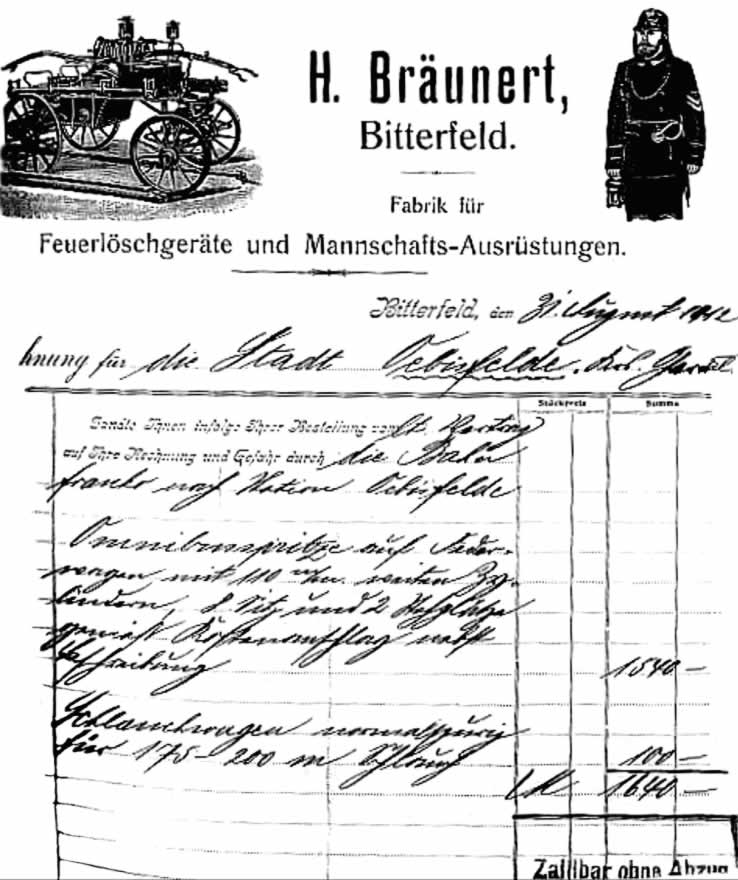 H. Bräunert,
Bitterfeld.
Fabrik für
Feuerlöschgeräte und Mannschafts-Ausrüstungen.
Bitterfeld, den 31. August 1912
hnung für die Stadt Oebisfelde.
Stückpreis Summa
Sandte Ihnen infolge Ihrer Bestellung von lt. Vertrag
auf Ihre Rechnung und Gefahr durch die Bahn
franko nach Station Oebisfelde
Omnibusspritze auf Feder-
wagen mit 110 m/m. weiten Zy-
lindern, 8 Sitz und 2
gemäß Kostenanschlag nebst
1540.–
Schlauchwagen normalspurig
für 175–200 m Schlauch 100–
M 1640.–
Zahlbar ohne Abzug